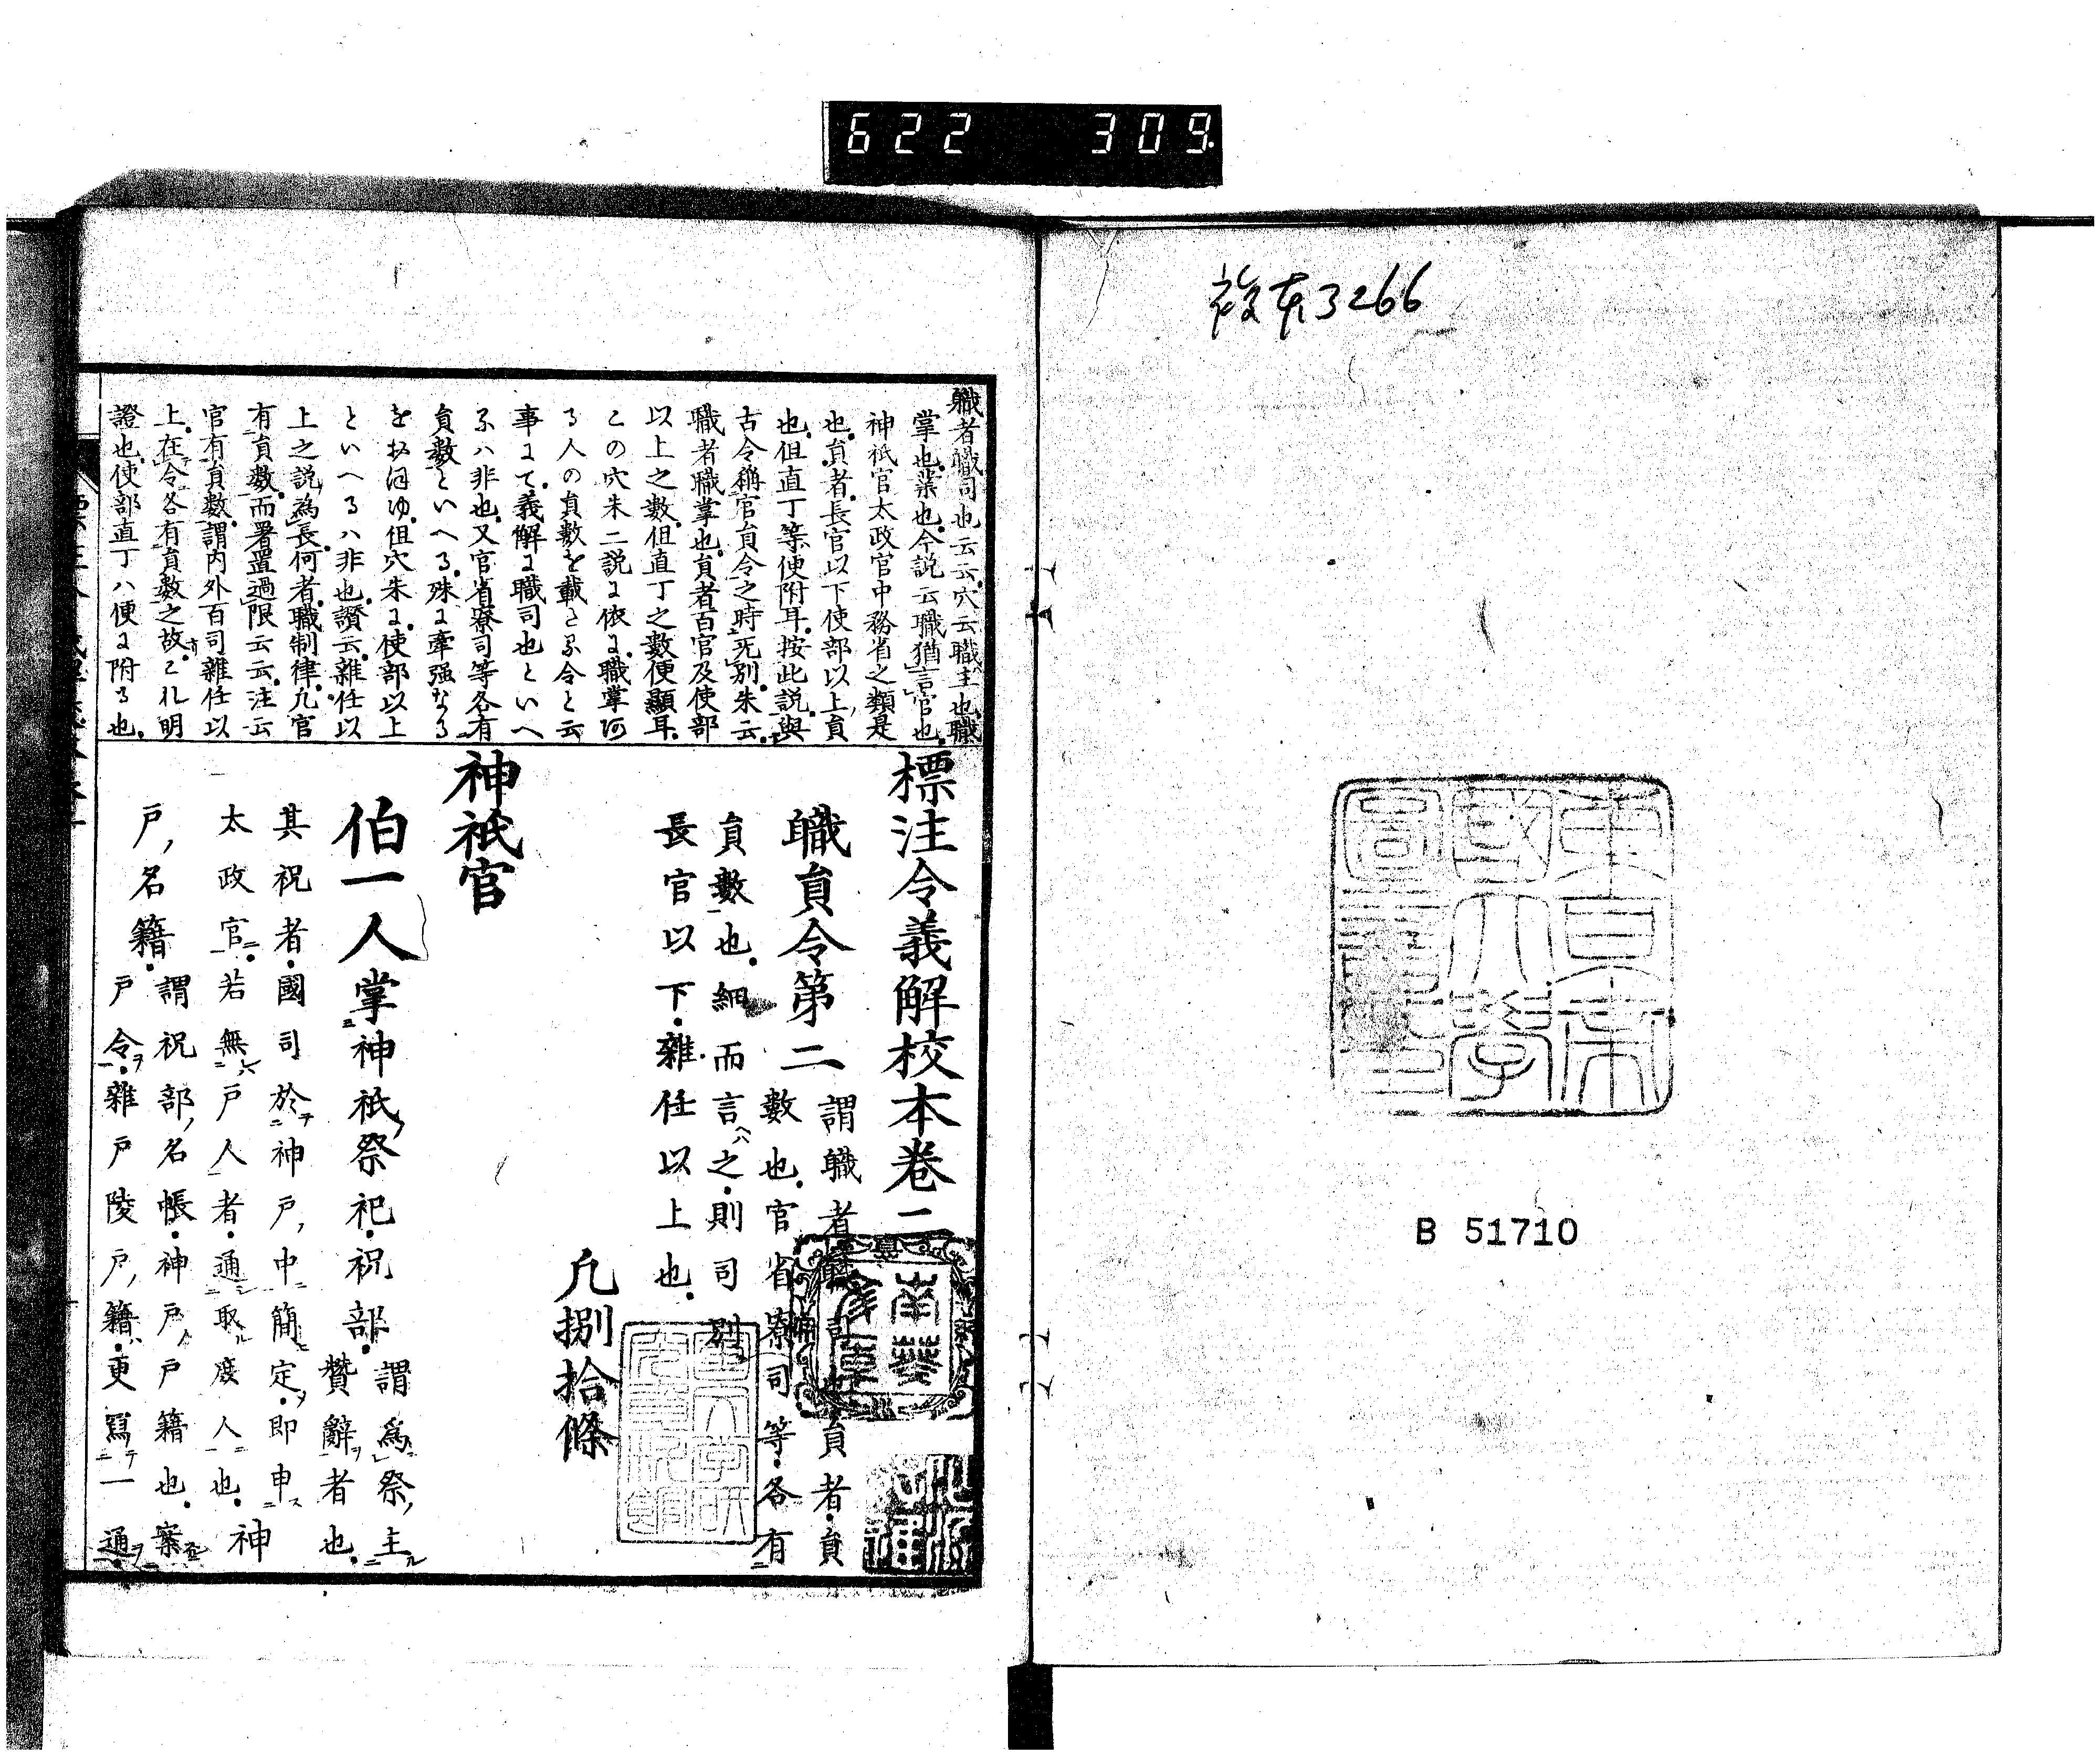 622 309
複本3266
東京帝國大學圖書印
B 51710
職者職司也云云穴云職主也職
掌也業也今說云職猶言官也
神祇官太政官中務省之類是
也員者長官以下使部以上員
也但直丁等便附耳按此說與
古令稱官員令之時无別朱云
職者職掌也員者百官及使部
以上之數但直丁之數便顯耳
この穴朱二説に依に職掌
る人の員數を載たる令と云
事にて義解に職司也といへ
るハ非也又官省寮司等各有
員數といへる殊に牽强なる
をおほゆ但穴朱に使部以上
といへるハ非也讃云雜任以
上之說爲長何者職制律凡官
有員數而署置過限云云注云
官有員數謂內外百司雜任以
上在令各有員數之故これ明
證也使部直丁ハ便に附る也
標注令義解校本卷二
職員令第二
謂職者職司也員者員
數也官省寮司等各有
員數也細而言之則司別
長官以下雜任以上也
凡捌拾條
神祇官
伯一人掌神祇祭祀祝部
謂爲祭主
贊辭者也
其祝者國司於神戶中簡定即申
太政官若無戶人者通取庶人也神
戶名籍
謂祝部名帳神戶戶籍也案
戶令雜戶陵戶籍更寫一通